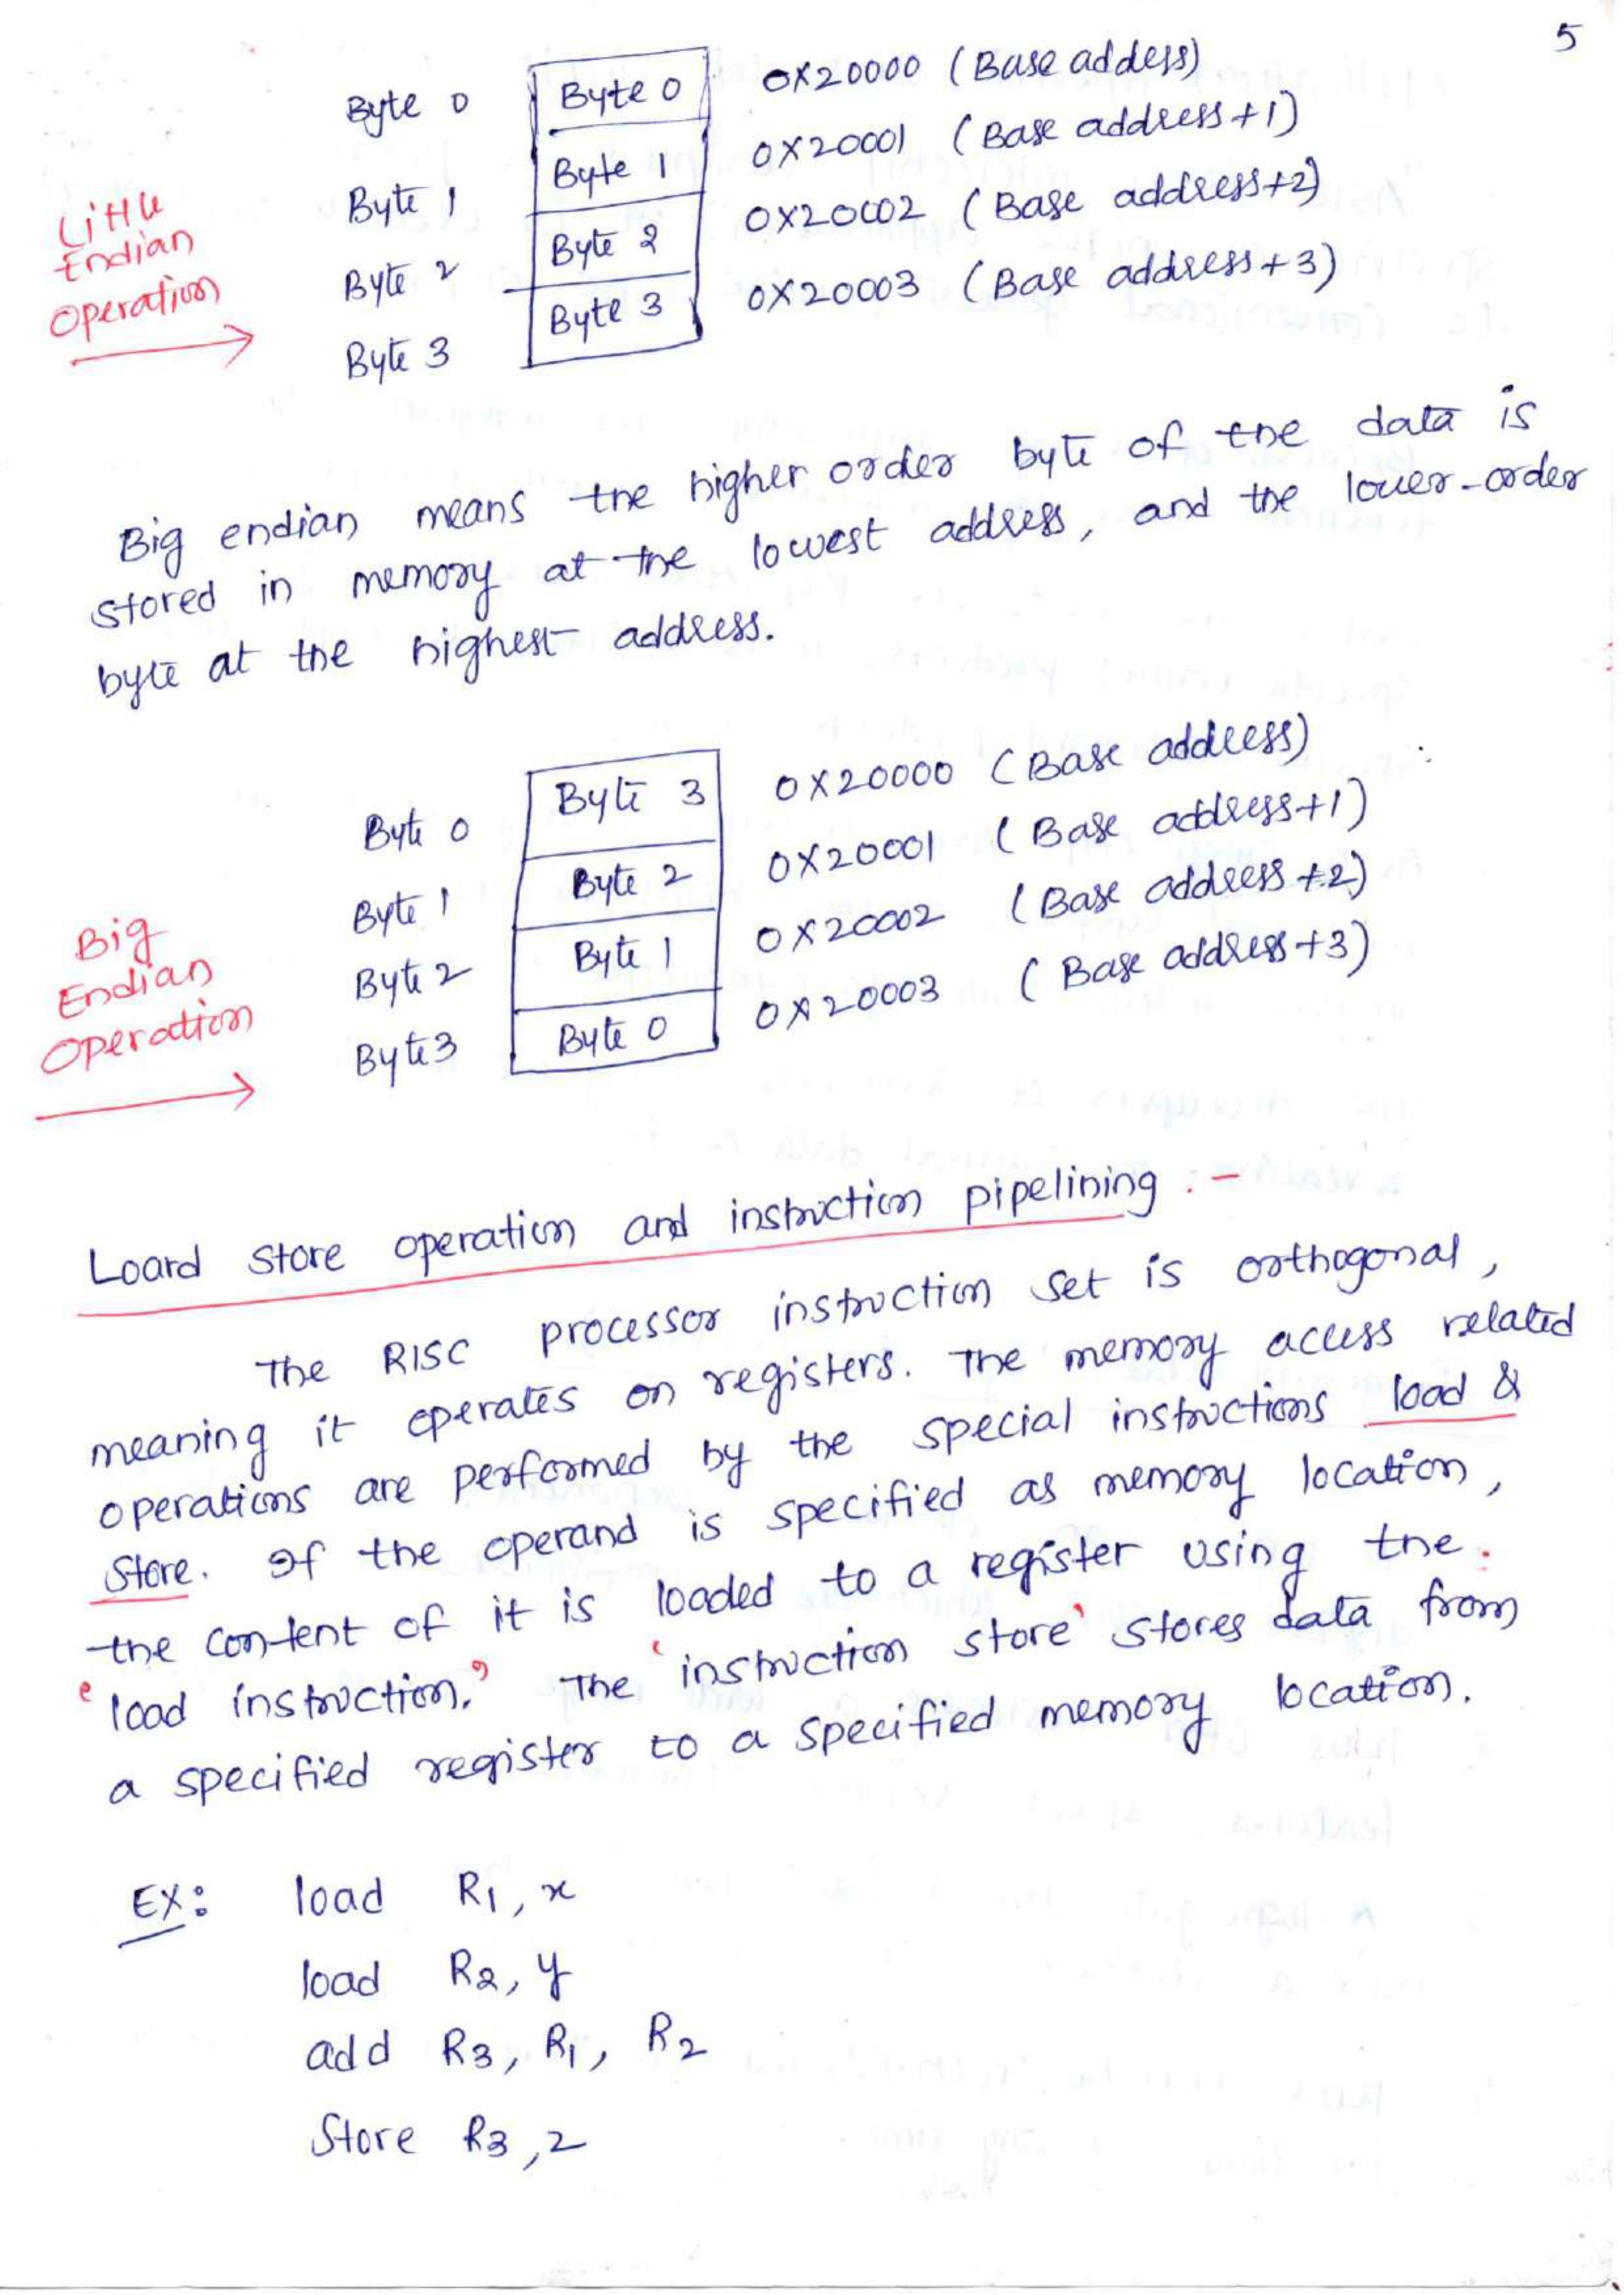 5
Byte 0 Byte 0 0X20000 (Base addess)
Byte 1 Byte 1 0X20001 (Base address+1)
Little
Endian
Operation
Byte 2 Byte 2 0X20002 (Base address+2)
Byte 3 Byte 3 0X20003 (Base address+3)
Big endian means the higher order byte of the data is
stored in memory at the lowest address, and the lower-order
byte at the highest address.
Byte 0 Byte 3 0X20000 (Base address)
Byte 1 Byte 2 0X20001 (Base address+1)
Big
Endian
Operation
Byte 2 Byte 1 0X20002 (Base address+2)
Byte3 Byte 0 0X20003 (Base address+3)
Loard store operation and instruction pipelining :-
The RISC processor instruction set is orthogonal,
meaning it operates on registers. The memory access related
operations are performed by the special instructions load &
store. If the operand is specified as memory location,
the content of it is loaded to a register using the
'load instruction.' The 'instruction store' stores data from
a specified register to a specified memory location.
EX: load R1, x
load R2, y
add R3, R1, R2
Store R3, z